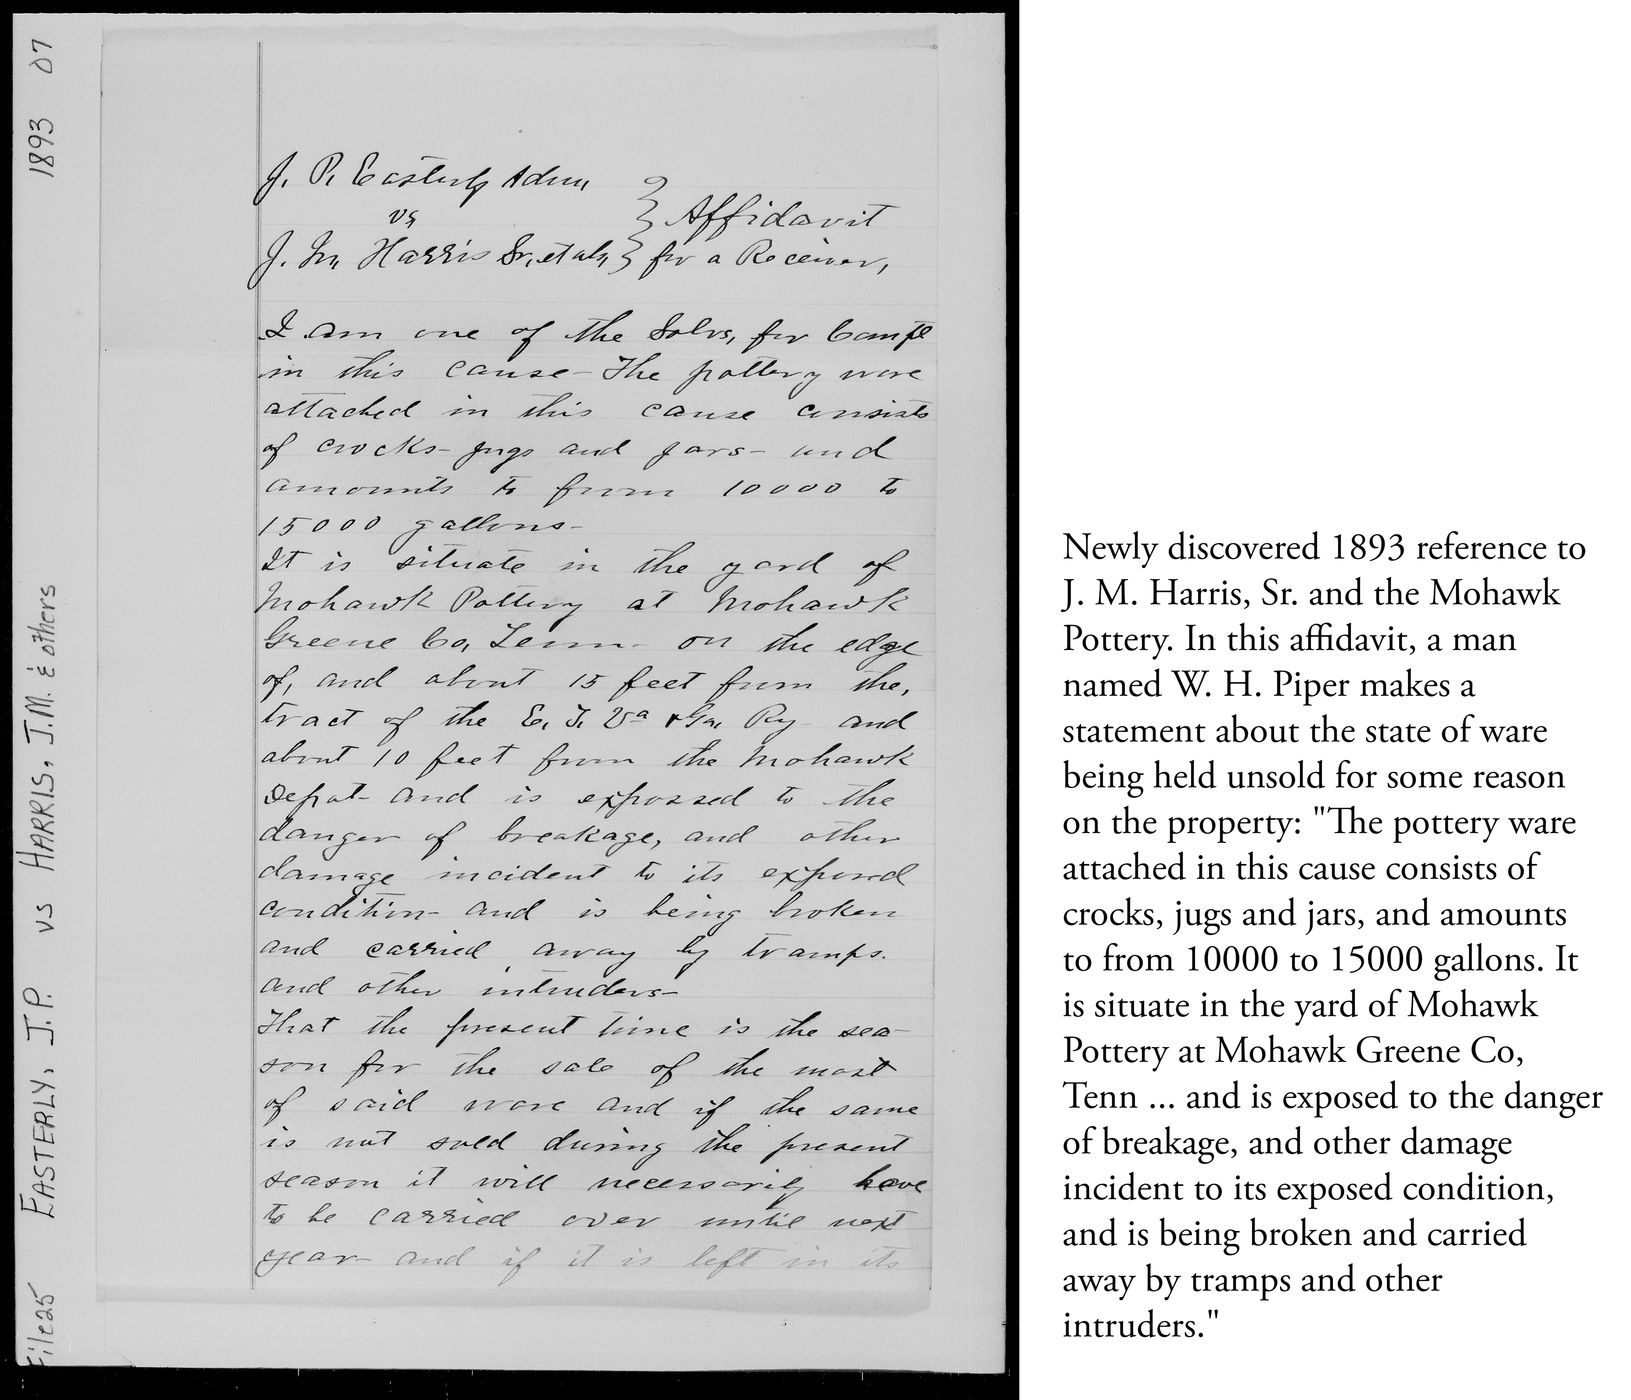 1893 07
EASTERLY, J.P. vs HARRIS, J.M. & others
File 25
J. P. Easterly Adm,
vs
J. M. Harris Sr, et als,
} Affidavit
for a Receiver,
I am one of the Solrs, for Compl
in this cause – The pottery ware
attached in this cause consists
of crocks – jugs and jars – and
amounts to from 10000 to
15000 gallons –
It is situate in the yard of
Mohawk Pottery at Mohawk
Greene Co, Tenn – on the edge
of, and about 15 feet from the,
tract of the E. T. Va & Ga, Ry – and
about 10 feet from the Mohawk
Depot – and is expossed to the
danger of breakage, and other
damage incident to its exposed
condition – and is being broken
and carried away by tramps.
and other intruders –
That the present time is the sea-
son for the sale of the most
of said ware and if the same
is not sold during the present
season it will necessarily have
to be carried over until next
year – and if it is left in its
Newly discovered 1893 reference to
J. M. Harris, Sr. and the Mohawk
Pottery. In this affidavit, a man
named W. H. Piper makes a
statement about the state of ware
being held unsold for some reason
on the property: "The pottery ware
attached in this cause consists of
crocks, jugs and jars, and amounts
to from 10000 to 15000 gallons. It
is situate in the yard of Mohawk
Pottery at Mohawk Greene Co,
Tenn ... and is exposed to the danger
of breakage, and other damage
incident to its exposed condition,
and is being broken and carried
away by tramps and other
intruders."